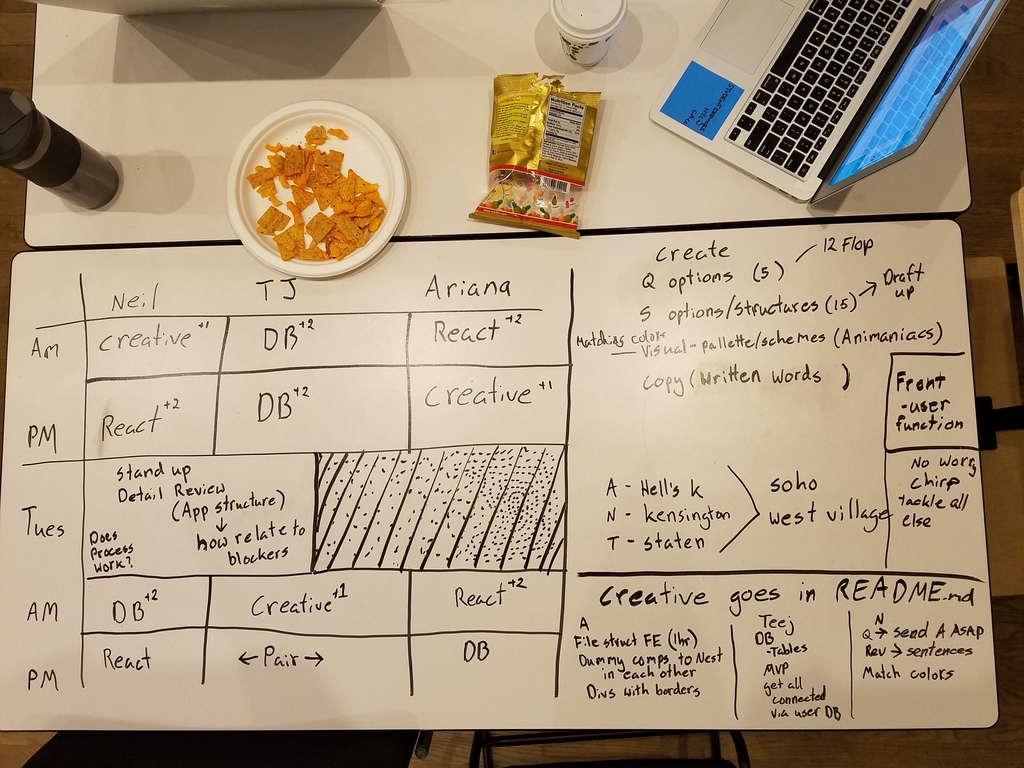 Nutrition Facts
Neil TJ Ariana
AM creative+1 DB+2 React+2
PM React+2 DB+2 Creative+1
Tues
Stand up
Detail Review
(App structure)
↓
how relate to
blockers
Does
Process
work?
AM DB+2 Creative+1 React+2
PM React ←Pair→ DB
create
Q options (5) / 12 Flop
S options/structures (15) → Draft up
Matching colors
— Visual - pallette/schemes (Animaniacs)
copy (written words )
Front
-user
function
No worry
Chirp
tackle all
else
A - Hell's k
N - kensington
T - staten
soho
west village
creative goes in README.md
A
File struct FE (1hr)
Dummy comps to Nest
in each other
Divs with borders
Teej
DB
-Tables
MVP
get all
connected
via user DB
N
Q → send A ASAP
Rev → sentences
Match colors